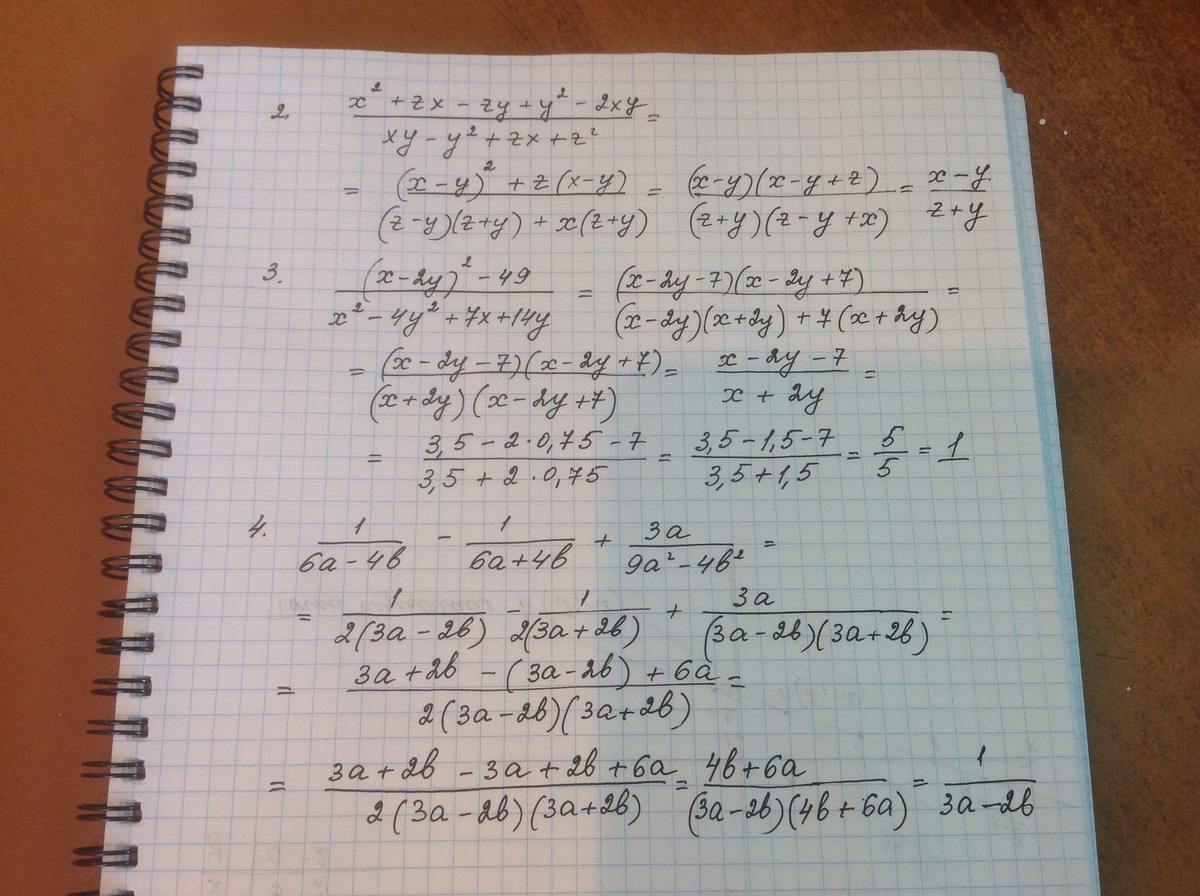 2. (x² + zx - zy + y² - 2xy)/(xy - y² + zx + z²) =
= ((x-y)² + z(x-y))/((z-y)(z+y) + x(z+y)) = ((x-y)(x-y+z))/((z+y)(z-y+x)) = (x-y)/(z+y)
3. ((x-2y)² - 49)/(x² - 4y² + 7x + 14y) = ((x-2y-7)(x-2y+7))/((x-2y)(x+2y) + 7(x+2y)) =
= ((x-2y-7)(x-2y+7))/((x+2y)(x-2y+7)) = (x-2y-7)/(x+2y) =
= (3,5 - 2·0,75 - 7)/(3,5 + 2·0,75) = (3,5-1,5-7)/(3,5+1,5) = 5/5 = 1
4. 1/(6a-4b) - 1/(6a+4b) + 3a/(9a²-4b²) =
= 1/(2(3a-2b)) - 1/(2(3a+2b)) + 3a/((3a-2b)(3a+2b)) =
= (3a+2b - (3a-2b) + 6a)/(2(3a-2b)(3a+2b)) =
= (3a+2b - 3a+2b+6a)/(2(3a-2b)(3a+2b)) = (4b+6a)/((3a-2b)(4b+6a)) = 1/(3a-2b)